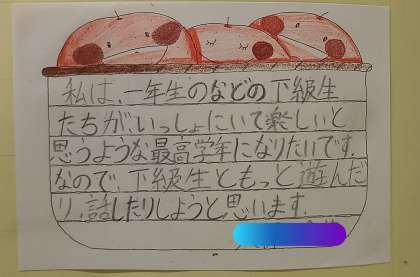 私は、一年生のなどの下級生
たちが、いっしょにいて楽しいと
思うような最高学年になりたいです。
なので、下級生ともっと遊んだ
り、話したりしようと思います。